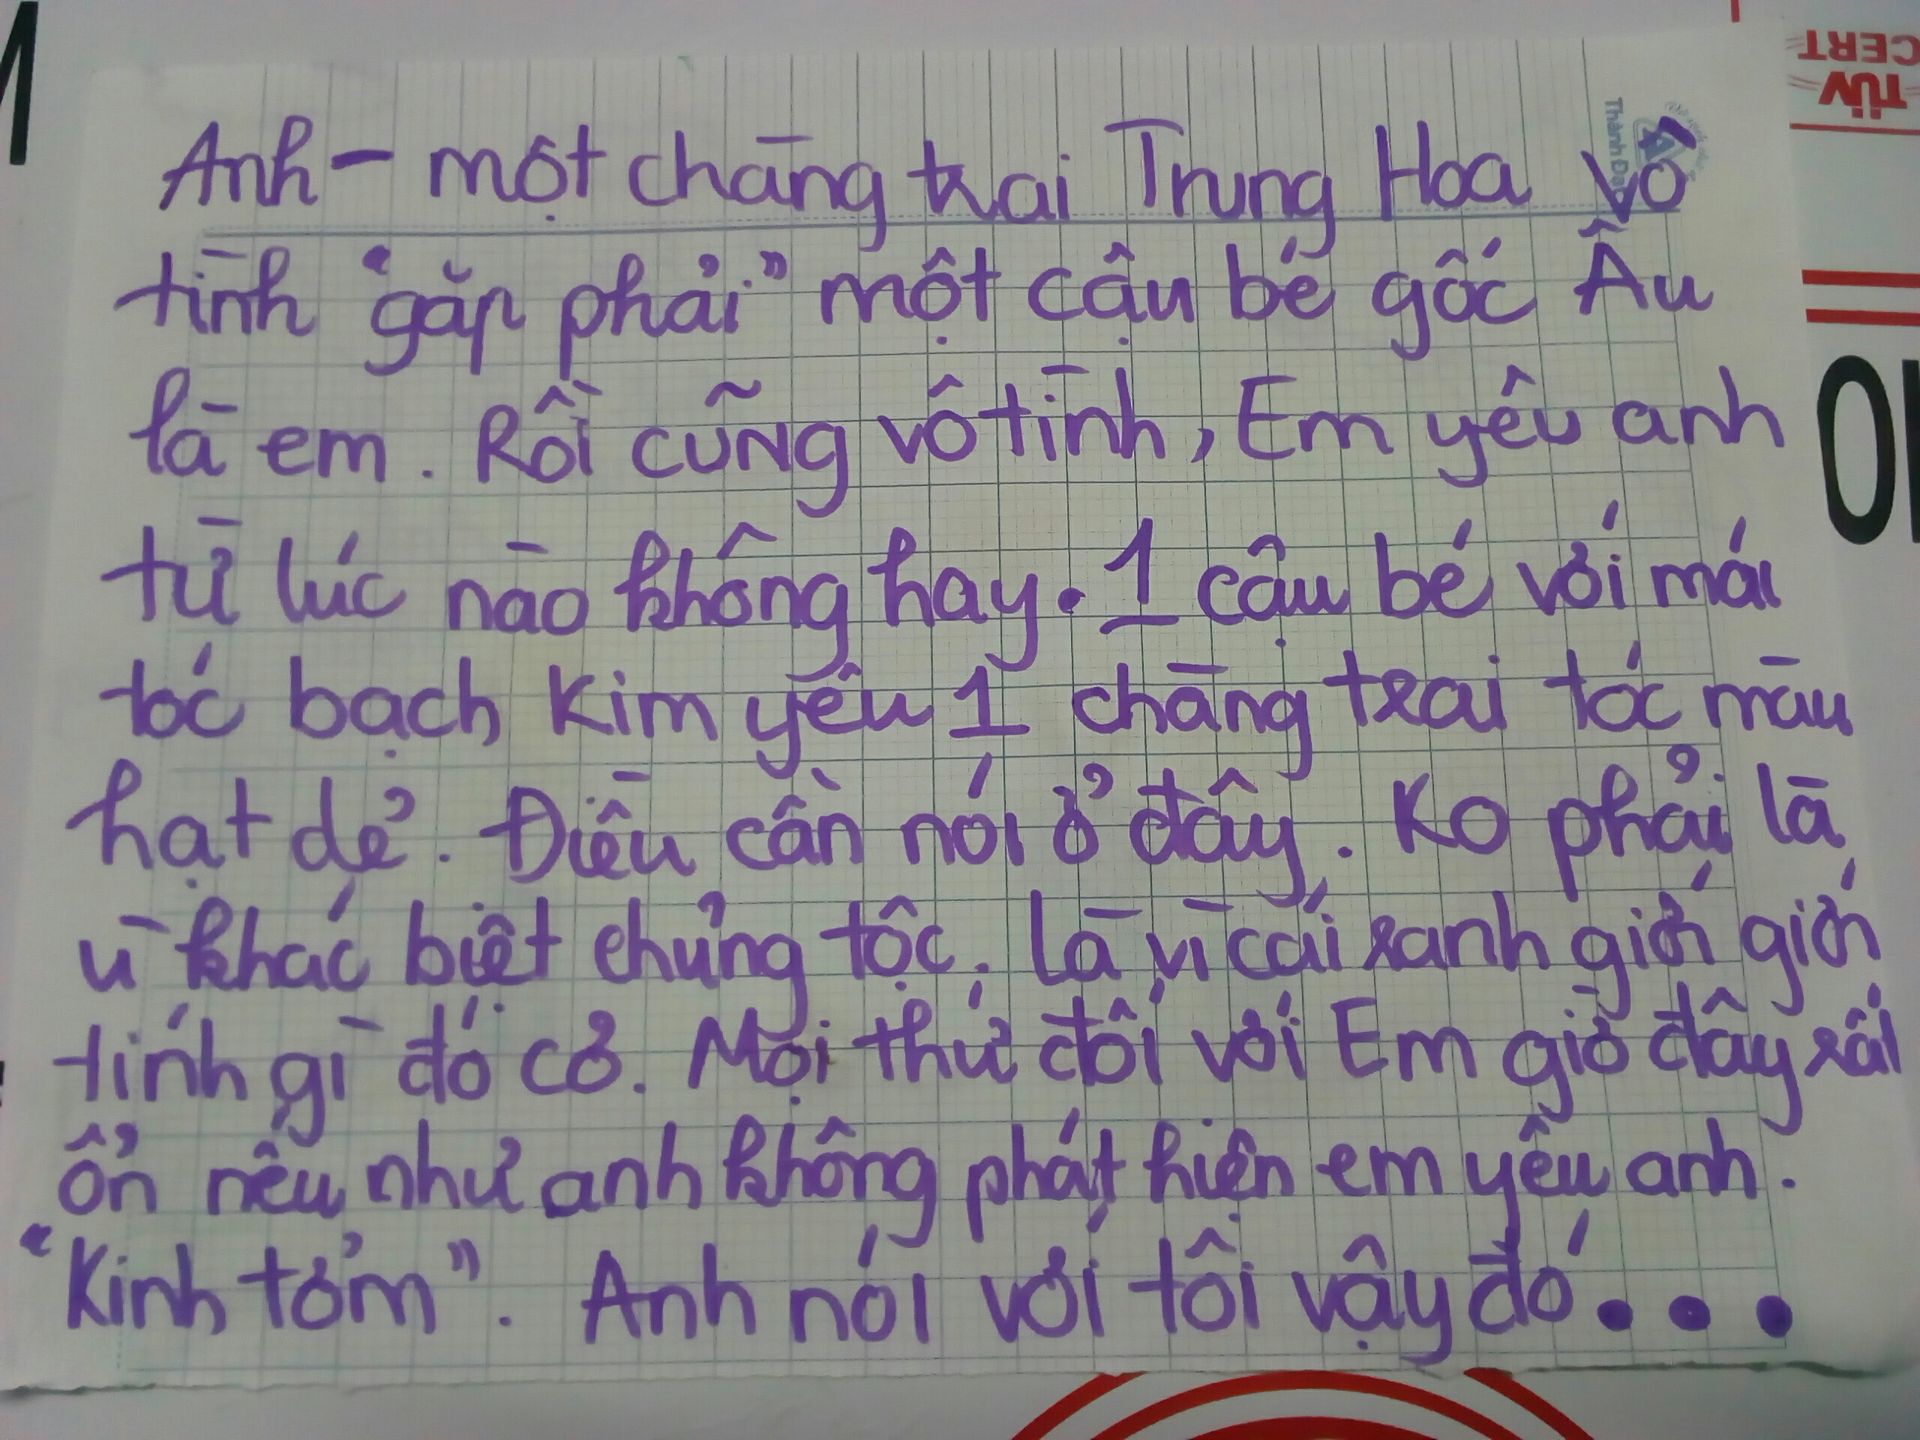 Anh - một chàng trai Trung Hoa vô
tình "gặp phải" một cậu bé gốc Âu
là em. Rồi cũng vô tình, Em yêu anh
từ lúc nào không hay. 1 cậu bé với mái
tóc bạch kim yêu 1 chàng trai tóc màu
hạt dẻ. Điều cần nói ở đây. Ko phải là
vì khác biệt chủng tộc. Là vì cái ranh giới giới
tính gì đó cơ. Mọi thứ đối với Em giờ đây rất
ổn nếu như anh không phát hiện em yêu anh.
"Kinh tởm". Anh nói với tôi vậy đó...
TÜV
CERT
Thành Đạt